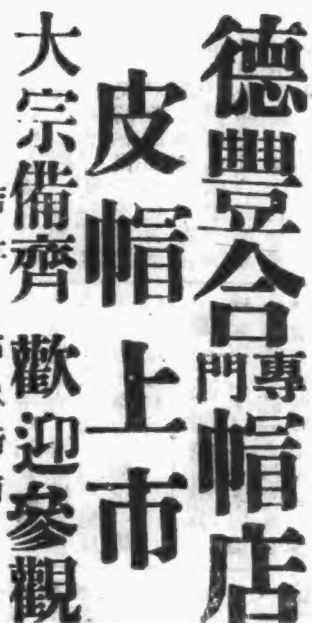 德豐合專門帽店
皮帽上市
大宗備齊 歡迎參觀